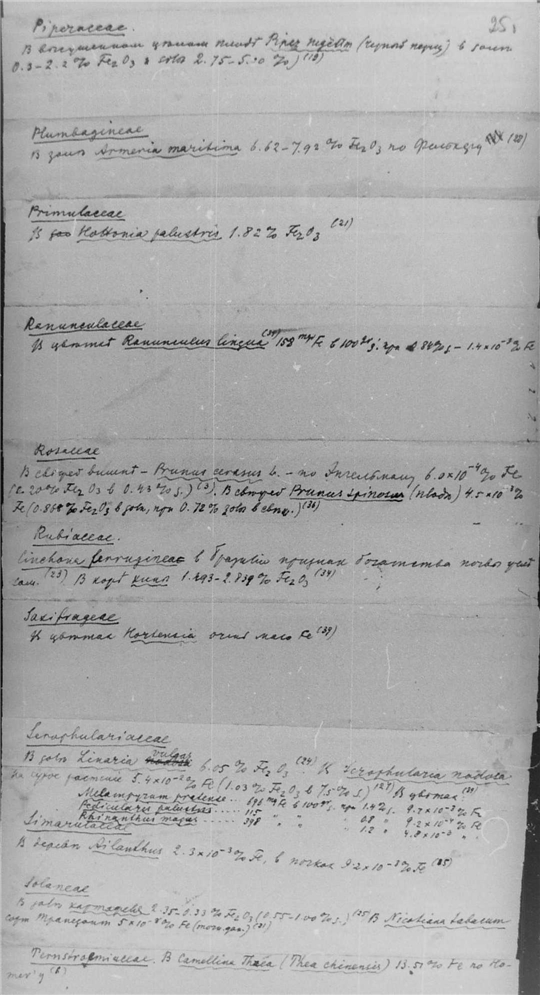 25.
Piperaceae.
В высушенном цѣлом плодѣ Piper nigrum (черный перец) в золѣ
0.3-2.2% Fe2O3 золы 2.75-5.   %) (18)
Plumbagineae
В золѣ Armeria maritima 6.62-7.92% Fe2O3 по (20)
Primulaceae
В Hottonia palustris 1.82% Fe2O3 (21)
Ranunculaceae
В цвѣтах Ranunculus lingua 152 mgr Fe в 100 gr S. при - 1.4×10 % Fe
Rosaceae
В свѣжей вишнѣ - Prunus cerasus L. - по Энгельману 6.0×10-4% Fe
20% Fe2O3 в 0.43% S.) В свѣжей Prunus spinosus (плоды) 4.5×10-3%
Fe (0.868% Fe2O3 в золѣ, при 0.72% золы в свѣж.) (36)
Rubiaceae.
Cinchona ferrugineae в Бразилии признак богатства почвы
(23) В корѣ хины 1.293-2.839% Fe2O3 (34)
Saxifrageae
В цвѣтах Hortensia очень мало Fe (39)
Scrophulariaceae
В золѣ Linaria vulgar 6.05% Fe2O3 (24). В Scrophularia nodosa
на сухое растение 5.4×10-2% Fe (1.03% Fe2O3 в 7.5% S.) В цвѣтах:
Melampyrum pratense ..... 696 mg Fe в 100 gr S. при 1.4% S. 9.7×10-3% Fe
Pedicularis palustris .... 115 " " " 0.8 " 9.2×10-4% "
Rhinanthus major ..... 398 " " " 1.2 " 4.8×10-3 "
Simarubaceae
В деревѣ Ailanthus 2.3×10-3% Fe, в почках 9.2×10-2% Fe (25)
Solaneae
В золѣ картофеля 2.35-0.33% Fe2O3 (0.55-1.00% S.) В Nicotiana tabacum
сорт Трапезонт 5×10 % Fe
Ternströmiaceae. В Camellina Thaea (Thea chinensis) 13.51% Fe по